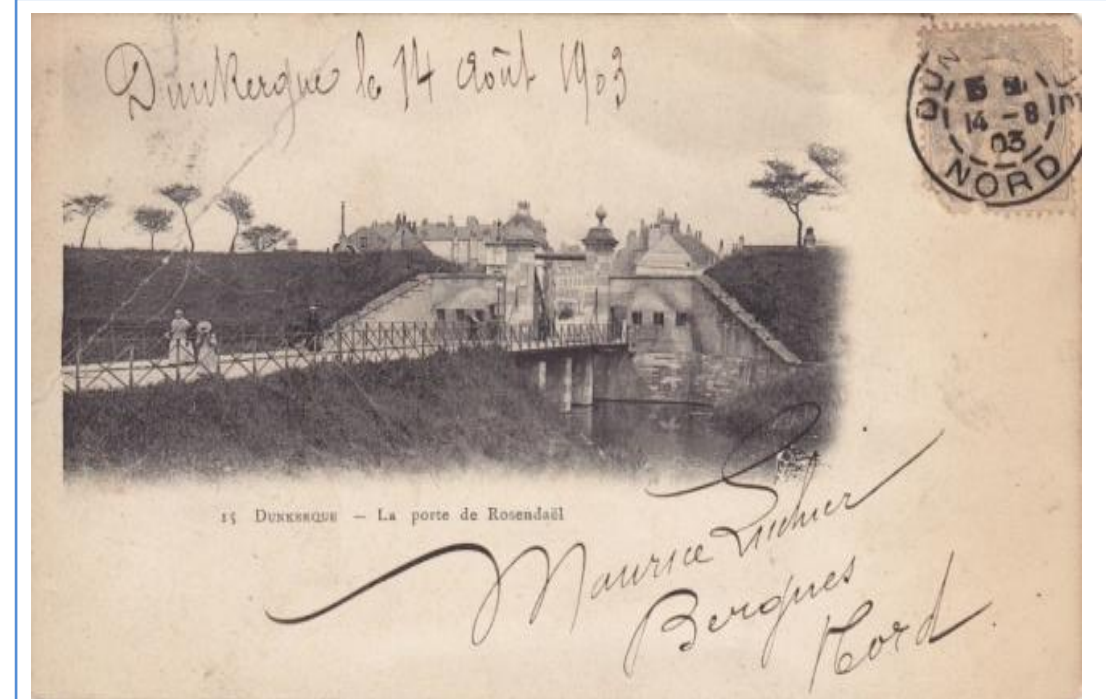 Dunkerque le 14 Août 1903
DUN
14 - 8
03
NORD
15 DUNKERQUE — La porte de Rosendaël
Maurice
Bergues
Nord